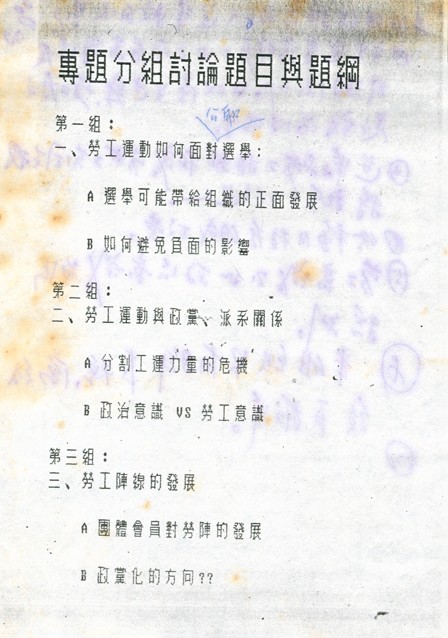 專題分組討論題目與題綱
第一組：
一、勞工運動如何面對選舉：
A 選舉可能帶給組織的正面發展
B 如何避免負面的影響
第二組：
二、勞工運動與政黨、派系關係
A 分割工運力量的危機
B 政治意識 VS 勞工意識
第三組：
三、勞工陣線的發展
A 團體會員對勞陣的發展
B 政黨化的方向??